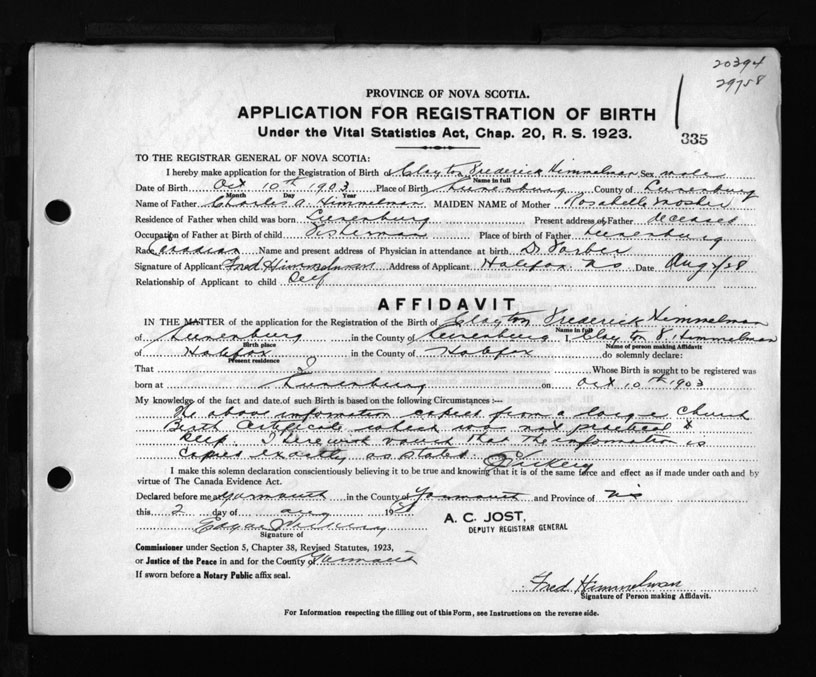 20394
29758
PROVINCE OF NOVA SCOTIA.
APPLICATION FOR REGISTRATION OF BIRTH
Under the Vital Statistics Act, Chap. 20, R. S. 1923.
335
TO THE REGISTRAR GENERAL OF NOVA SCOTIA:
I hereby make application for the Registration of Birth of Clayton Frederick Himmelman Sex male
Name in full
Date of Birth Oct 10th 1903 Place of Birth Lunenburg County of Lunenburg
Month Day Year
Name of Father Charles A. Himmelman MAIDEN NAME of Mother Rosabelle Mosher
Residence of Father when child was born Lunenburg Present address of Father deceased
Occupation of Father at Birth of child Fisherman Place of birth of Father Lunenburg
Race Name and present address of Physician in attendance at birth Dr
Signature of Applicant Fred Himmelman Address of Applicant Halifax NS Date Aug
Relationship of Applicant to child Self
AFFIDAVIT
IN THE MATTER of the application for the Registration of the Birth of Clayton Frederick Himmelman
Name in full
of Lunenburg in the County of Lunenburg I, Clayton F Himmelman
Birth place Name of person making Affidavit
of Halifax in the County of Halifax do solemnly declare:
Present residence
That I Whose Birth is sought to be registered was
born at Lunenburg on Oct 10th 1903
My knowledge of the fact and date of such Birth is based on the following Circumstances :—
The above information copied from a large church
Birth Certificate which was not practical to
keep. I herewith vouch that the information is
copied exactly as stated.
I make this solemn declaration conscientiously believing it to be true and knowing that it is of the same force and effect as if made under oath and by
virtue of The Canada Evidence Act.
Declared before me at Yarmouth in the County of Yarmouth and Province of NS
this 2 day of Aug 19
A. C. JOST,
DEPUTY REGISTRAR GENERAL
Edgar
Signature of
Commissioner under Section 5, Chapter 38, Revised Statutes, 1923,
or Justice of the Peace in and for the County of Yarmouth
If sworn before a Notary Public affix seal.
Fred Himmelman
Signature of Person making Affidavit.
For Information respecting the filling out of this Form, see Instructions on the reverse side.